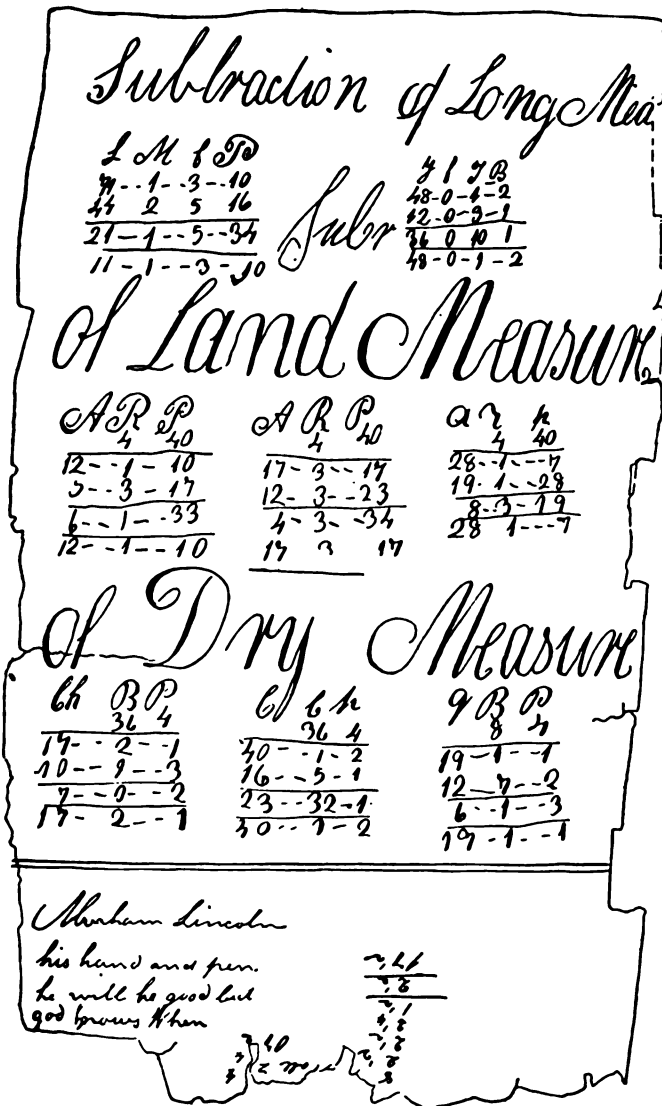 Subtraction of Long Mea
L M f P
1--3--10
44 2 5 16
21--1--5--34
11-1--3-10
Subr
Y f J B
48-0-1-2
12-0-3-1
36 0 10 1
48-0-1-2
of Land Measure
A R P
4 40
12--1-10
5--3-17
6--1--33
12--1--10
A R P
4 40
17-3--17
12-3--23
4-3--34
17 3 17
a r p
4 40
28--1---7
19-1--28
8-3-19
28 1---7
of Dry Measure
Ch B P
36 4
17--2--1
10--9--3
7--0--2
17-2--1
C b p
36 4
40--1-2
16--5-1
23--32-1
40--1-2
q B P
8 4
19-1--1
12-7--2
6--1--3
19-1--1
Abraham Lincoln
his hand and pen.
he will be good but
god knows When